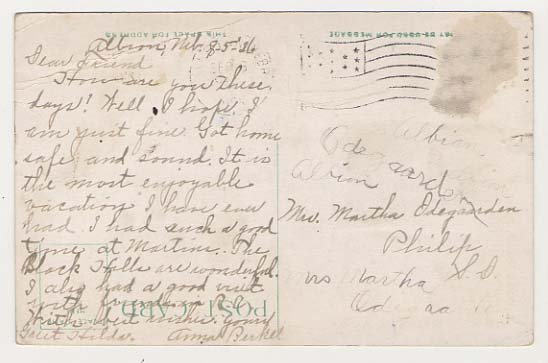 THIS SPACE FOR ADDRESS
MAY BE USED FOR MESSAGE
Albion, Neb. 8-5-'16
Dear Friend
How are you these
days! Well I hope. I
am just fine. Got home
safe and sound. It is
the most enjoyable
vacation I have ever
had. I had such a good
time at Martins. The
Black Hills are wonderful.
I also had a good visit
with
With best wishes. Yours
Greet Hilda. Anna Perkel
POST CARD
Albion
Odegaarden
Albion
Mrs. Martha Odegaarden
Philip
S. D.
Martha
Odegaa